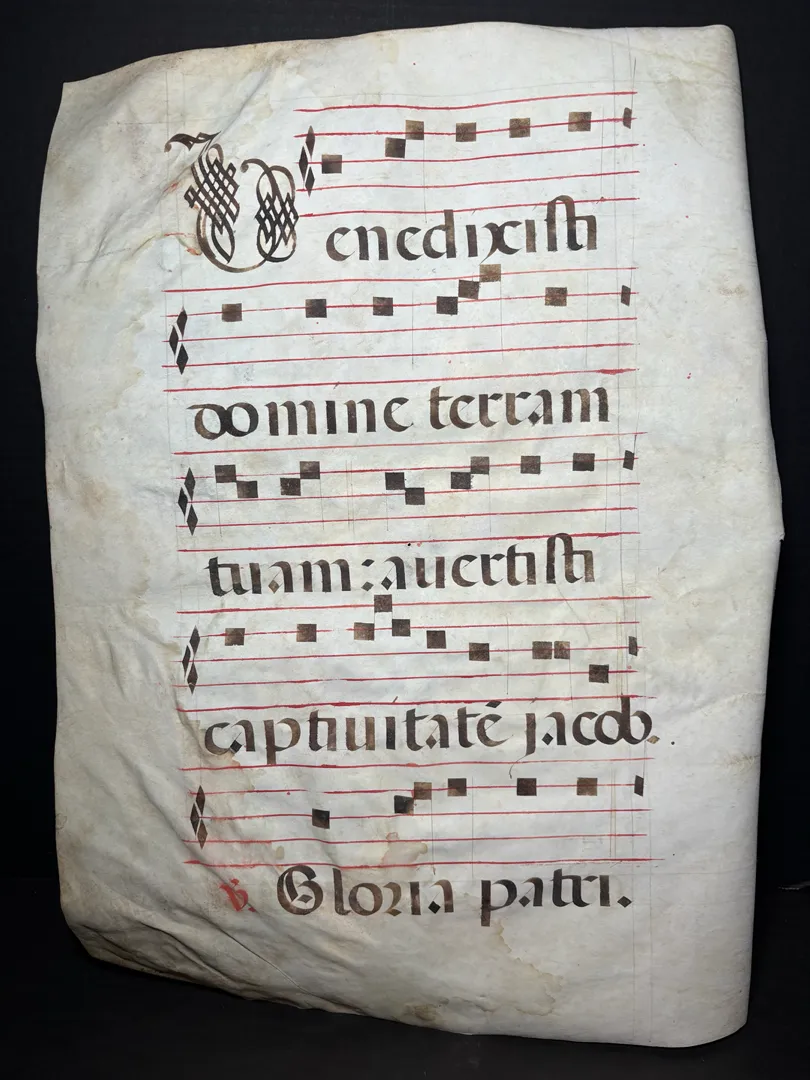 Benedixisti
domine terram
tuam : auertisti
captiuitatē jacob.
℣. Gloria patri.